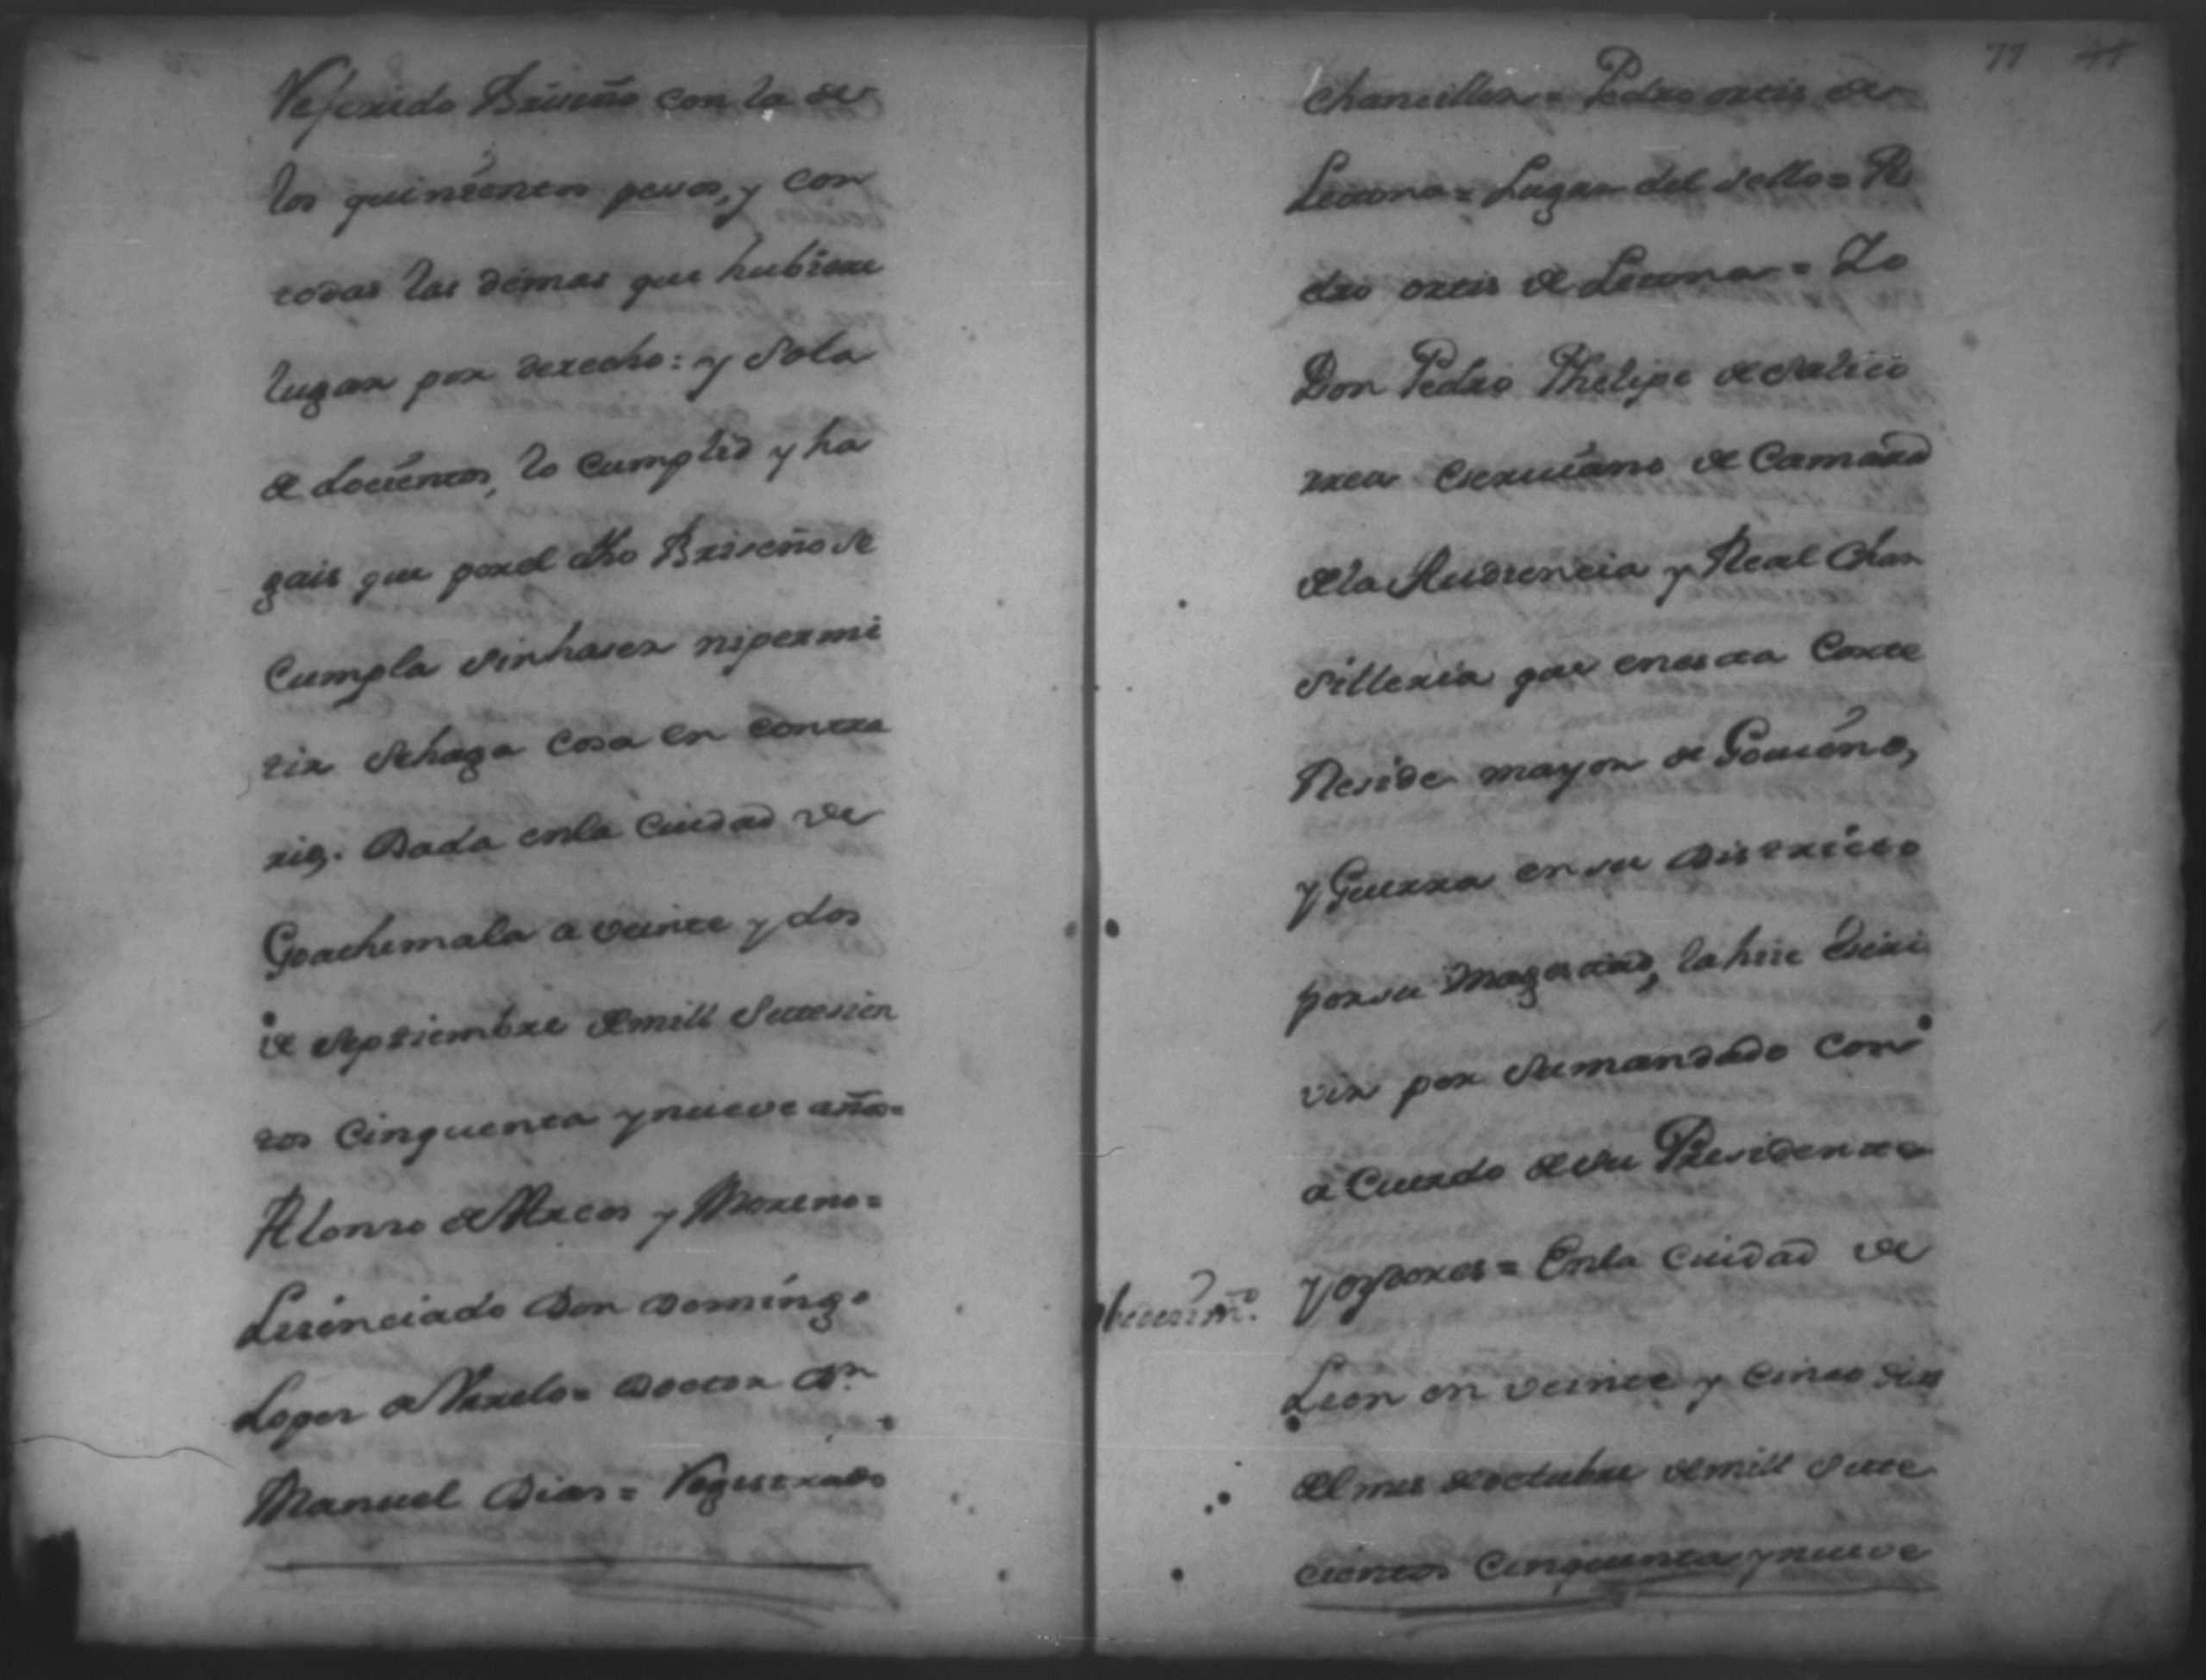 Referido Briseño con la de
los quinientos pesos, y con
todas las demas que hubiere
lugar por derecho: y sola
de Docientos, lo cumplid y ha
gais que por el dho Briseño se
Cumpla sin haser ni permi
tir se haga cosa en contra
rio. Dada en la Ciudad de
Goathemala a veinte y dos
de Septiembre de mill Setesien
tos Cinquenta y nueve años=
Alonso de Arcos y Moreno=
Lisenciado Don Domingo
Lopes de Urrelo= Doctor Dn
Manuel Dias= Registrado
77
Chanciller= Pedro ortis de
Letona= Lugar del Sello= Pe
dro ortis de Letona= Yo
Don Pedro Phelipe de Salici
rrea Escriuano de Camara
de la Audiencia y Real Chan
silleria que en esta Corte
Reside mayor de Gouierno,
y Guerra en su Districto
por su Magestad, la hize Escri
vir por su mandado con
a Cuerdo de su Presidente
y oydores= En la Ciudad de
Leon en veinte y Cinco dias
del mes de octubre de mill Sete
cientos Cinquenta y nueve